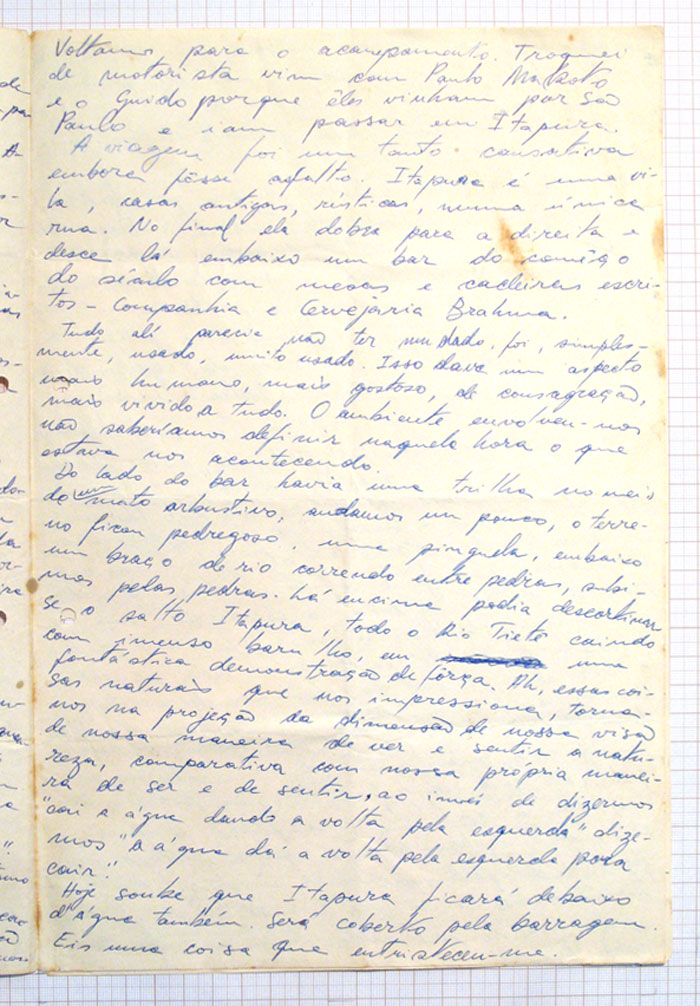 Voltamos para o acampamento. Troquei
de motorista vim com Paulo Makoto
e o Guido porque êles vinham por São
Paulo e iam passar em Itapura.
A viagem foi um tanto cansativa
embora fôsse asfalto. Itapura é uma vi-
la, casas antigas, rústicas, numa única
rua. No final ela dobra para a direita e
desce lá embaixo um bar do comêço
do século com mesas e cadeiras escri-
tos - Companhia e Cervejaria Brahma.
Tudo ali parecia não ter mudado. foi, simples-
mente, usado, muito usado. Isso dava um aspecto
mais humano, mais gostoso, de consagração,
mais vivido a tudo. O ambiente envolveu-nos
não saberíamos definir naquela hora o que
estava nos acontecendo.
Do lado do bar havia uma trilha no meio
de um mato arbustivo, andamos um pouco, o terre-
no ficou pedregoso, uma pinguela, embaixo
um braço de rio correndo entre pedras, subi-
mos pelas pedras. Lá encima podia descortinar
se o salto Itapura, todo o Rio Tietê caindo
com imenso barulho, em uma
fantástica demonstração de fôrça. Ah, essas coi-
sas naturais que nos impressiona, torna-
nos na projeção da dimensão de nossa visão
de nossa maneira de ver e sentir a natu-
reza, comparativa com nossa própria manei-
ra de ser e de sentir, ao invés de dizermos
"cai a água dando a volta pela esquerda" dize-
mos "a água dá a volta pela esquerda para
cair".
Hoje soube que Itapura ficará debaixo
d'água também. Será coberto pela barragem.
Eis uma coisa que entristeceu-me.